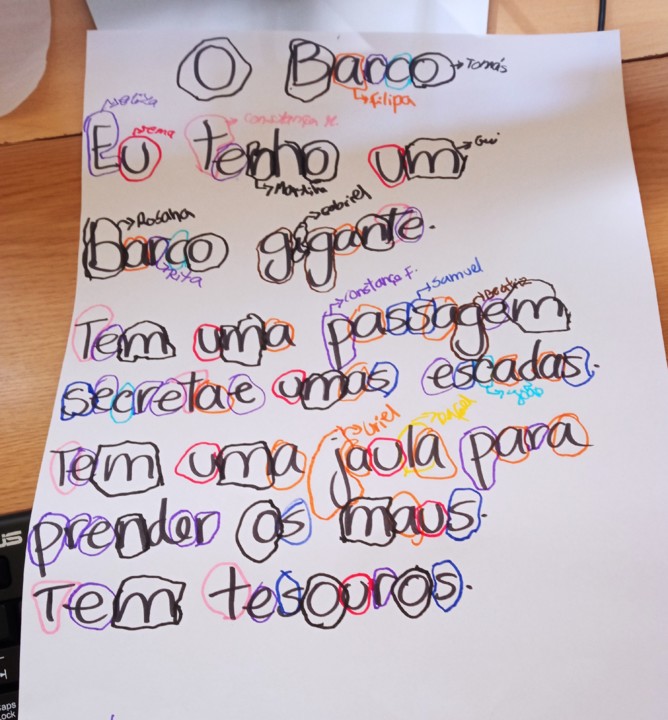 O Barco →Tomás
Filipa
Eu tenho um →Gui
Constança
Matilde
Barco gigante.
Rosana
Gabriel
Rita
Tem uma passagem
Constança F.
Samuel
Beatriz
secreta e umas escadas.
João
Tem uma jaula para
Uriel
prender os maus.
Tem tesouros.